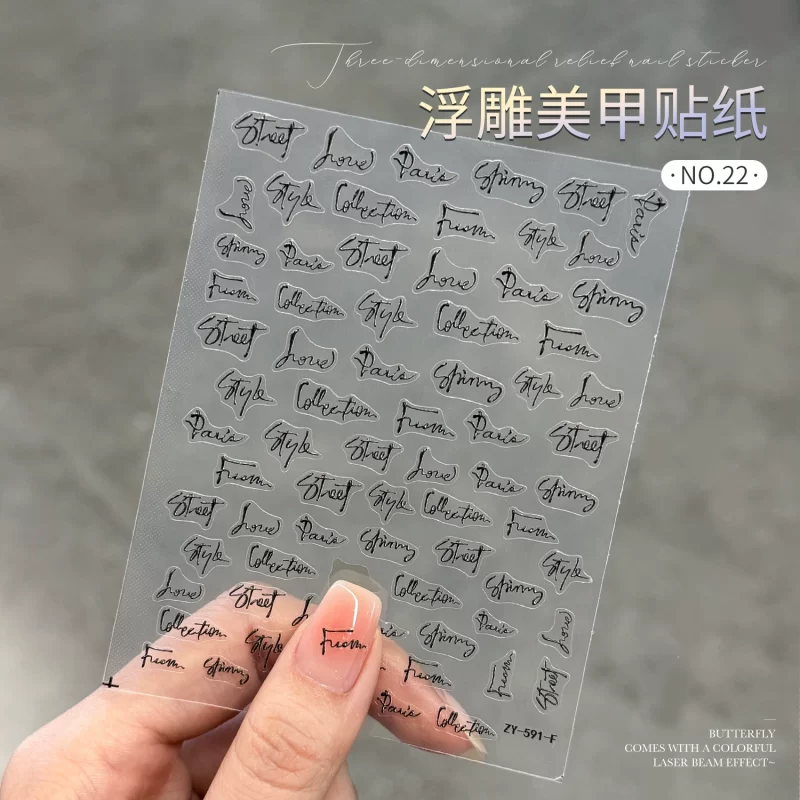 Three-dimensional relief nail sticker
浮雕美甲贴纸
·NO.22·
Street Love Paris Skinny Street Paris
Love Style Collection From Style Love
Skinny Paris Street Love Paris Skinny
From Collection Style Collection From
Street Love Paris Skinny Style Love
Style Collection From Paris Street
Paris Style Street Love Paris Skinny
From Street Style Collection From
Street Love Paris Skinny Street Style
Style Collection Collection Skinny
Love Street Paris Love
Collection Style Skinny
From Skinny From From From Street
Paris Collection
ZY-591-F
BUTTERFLY
COMES WITH A COLORFUL
LASER BEAM EFFECT~